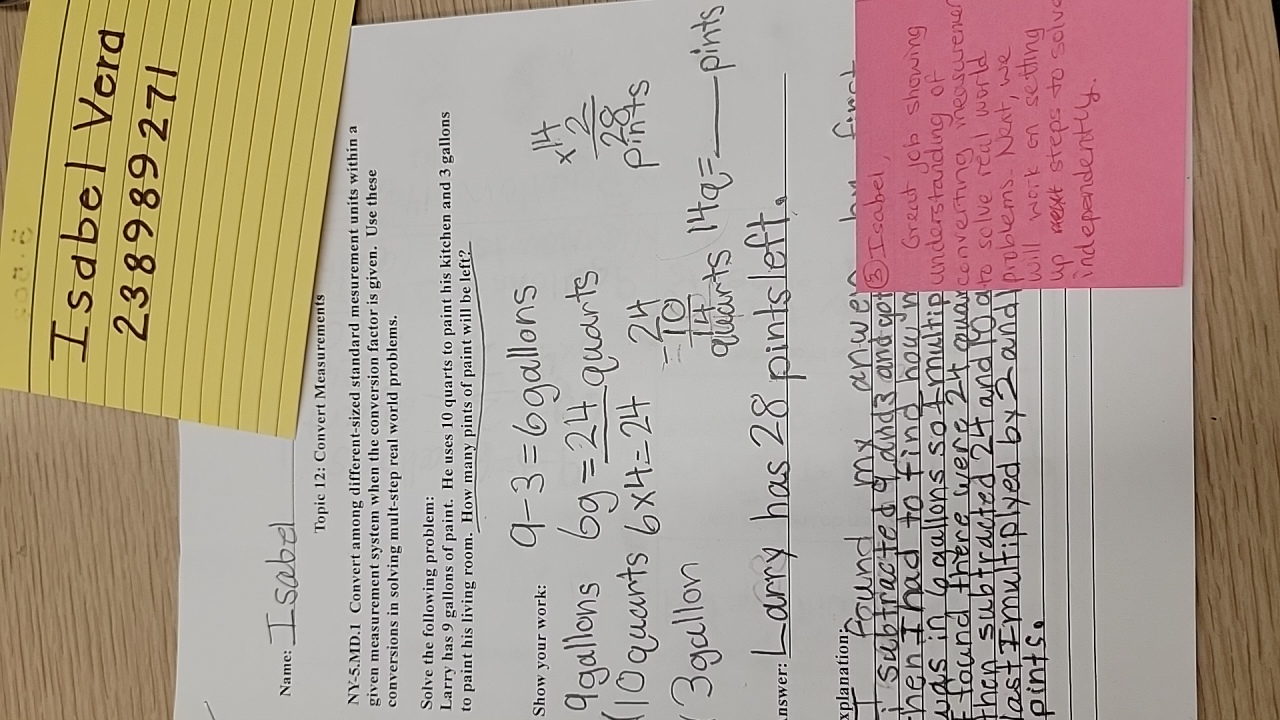 Isabel Vera
238989271
Name: Isabel
Topic 12: Convert Measurements
NY-5.MD.1 Convert among different-sized standard mesurement units within a
given measurement system when the conversion factor is given. Use these
conversions in solving mult-step real world problems.
Solve the following problem:
Larry has 9 gallons of paint. He uses 10 quarts to paint his kitchen and 3 gallons
to paint his living room. How many pints of paint will be left?
Show your work:
9gallons
10 quarts
3gallon
9-3=6gallons
6g=24 quarts
6x4=24
24
-10
14
quarts
x14
2
28
pints
14q=___pints
nswer: Larry has 28 pints left.
xplanation:
I found my anwer by first
i subtracted 9 and 3 and got
then I had to find how
was in 6 gallons so I multip
I found there were 24 quar
then subtracted 24 and 10 a
last I multiplyed by 2 and
pints.
③ Isabel,
Great job showing
understanding of
converting measuremen
to solve real world
problems. Next, we
will work on setting
up next steps to solve
independently.